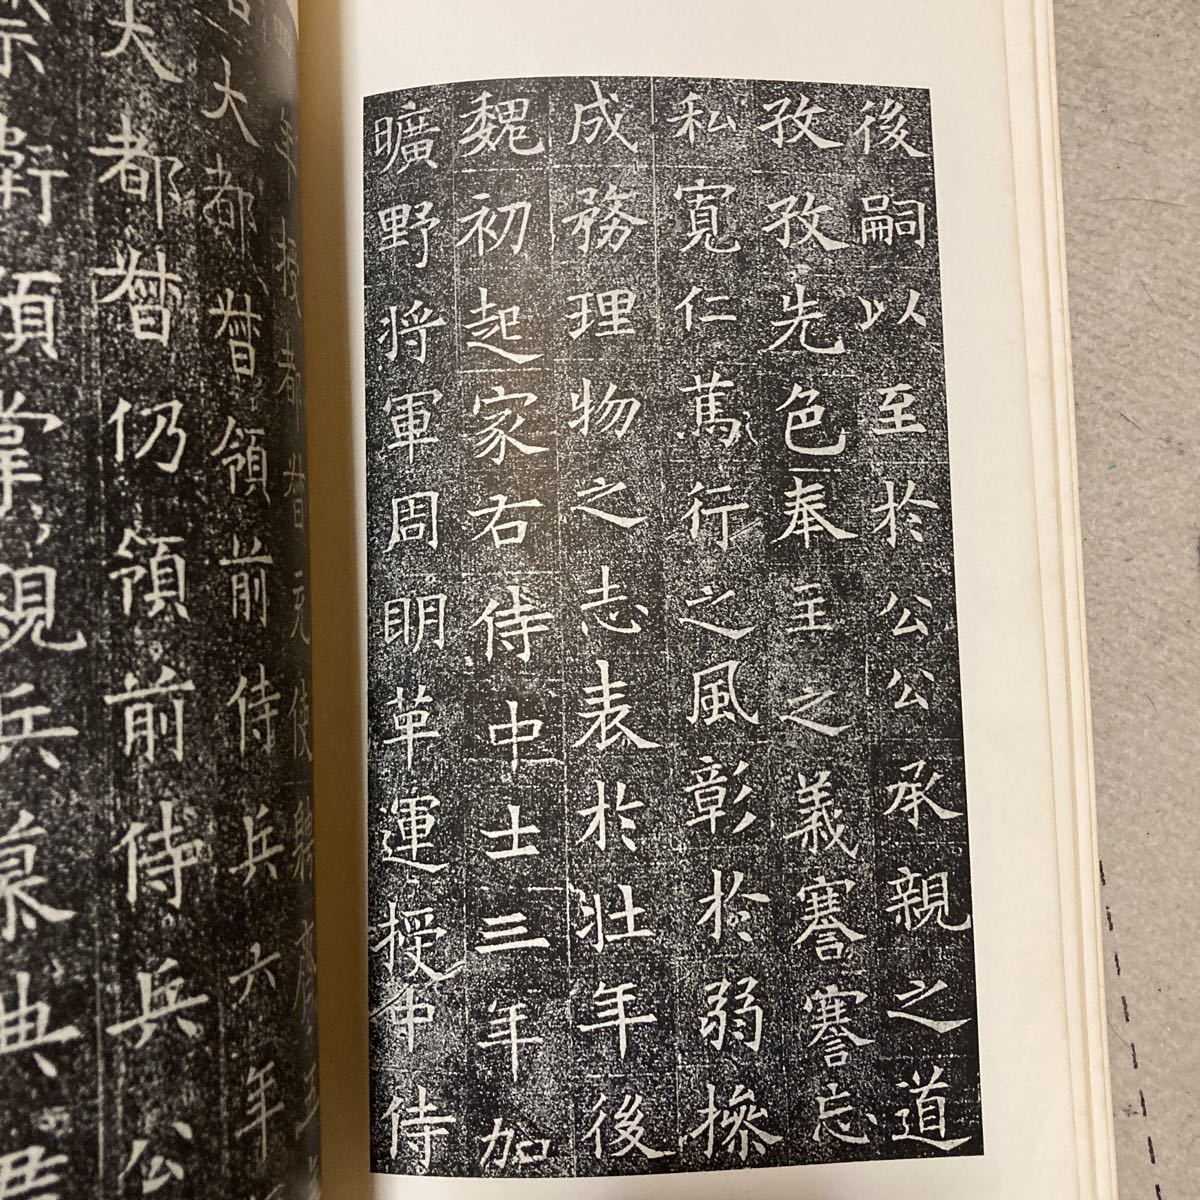 後嗣以至於公公承親之道
孜孜先色奉主之義謇謇忘
私寬仁篤行之風彰於弱操
成務理物之志表於壯年後
魏初起家右侍中士三年加
曠野將軍周明革運授中侍
年授都督
大都督領前侍兵六年
大都督仍領前侍兵公
衛領掌親兵